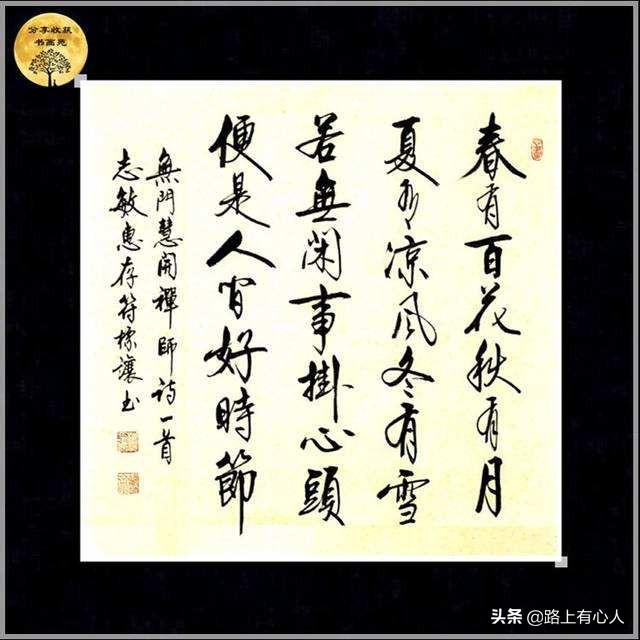 分享收获
书画苑
春有百花秋有月
夏有凉风冬有雪
若無闲事掛心頭
便是人间好時節
無門慧開禪師诗一首
志敏惠存符讓书
头条 @路上有心人